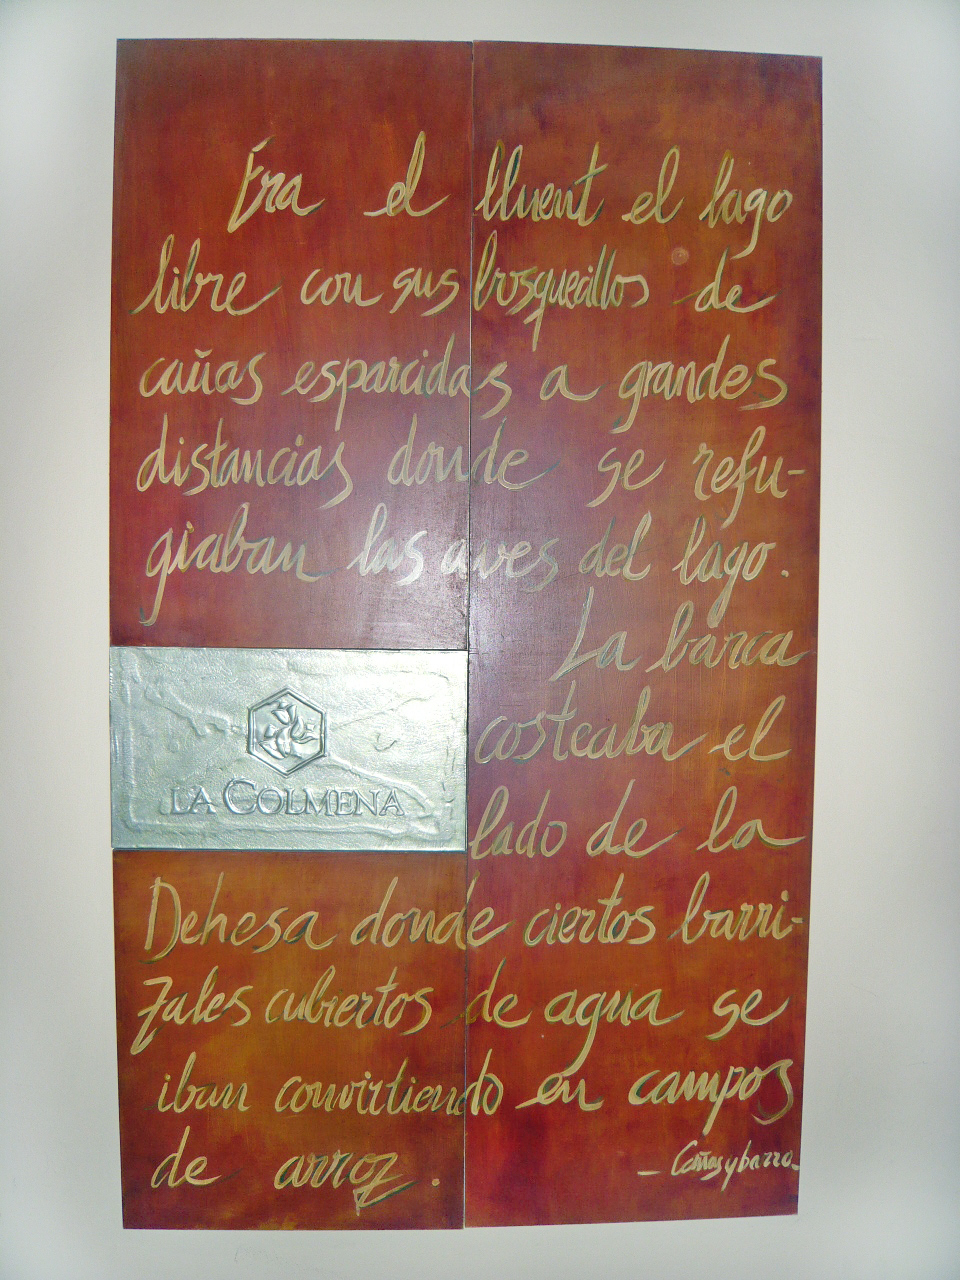 Era el lluent el lago
libre con sus bosquecillos de
cañas esparcidas a grandes
distancias donde se refu-
giaban las aves del lago.
La barca
costeaba el
LA COLMENA
lado de la
Dehesa donde ciertos barri-
zales cubiertos de agua se
iban convirtiendo en campos
de arroz.
- Cañas y barro -